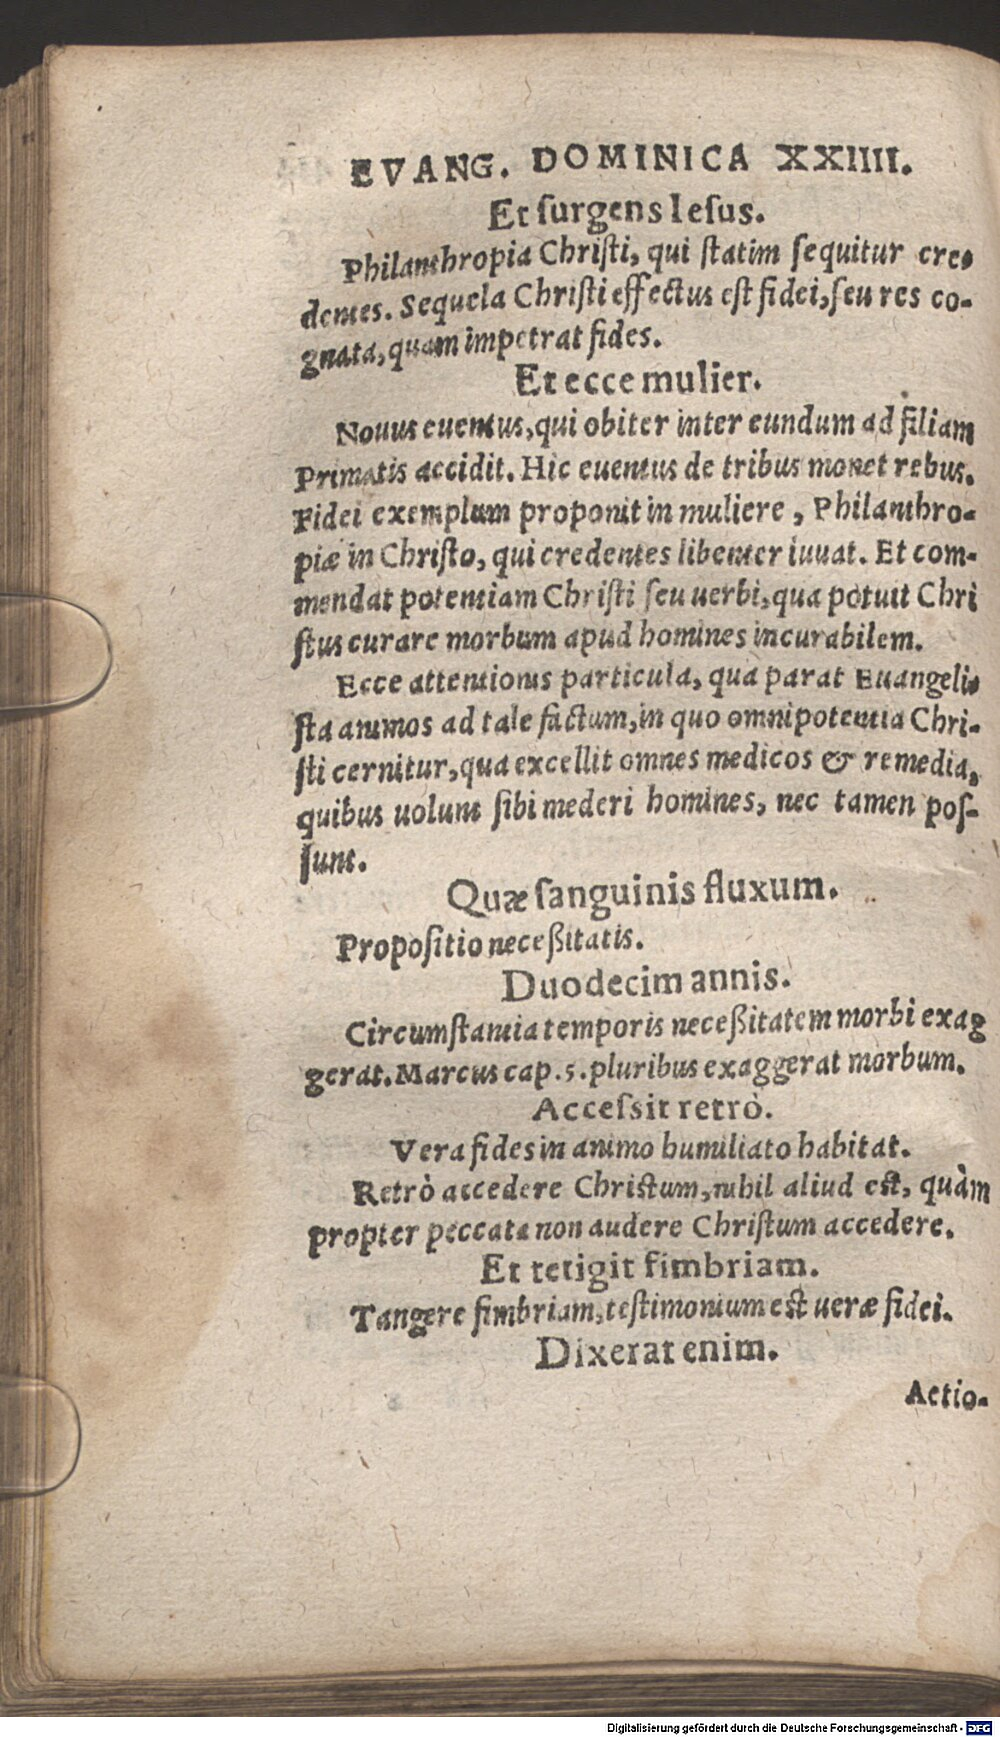 EVANG. DOMINICA XXIIII.
Et ſurgens Ieſus.
Philanthropia Christi, qui ſtatim ſequitur cre-
dentes. Sequela Chriſti effectus eſt fidei, ſeu res co-
gnata, quam impetrat fides.
Et ecce mulier.
Nouus euentus, qui obiter inter eundum ad filiam
Primatis accidit. Hic euentus de tribus monet rebus.
Fidei exemplum proponit in muliere, Philanthro-
piæ in Chriſto, qui credentes libenter iuuat. Et com-
mendat potentiam Chriſti ſeu uerbi, qua potuit Chri
ſtus curare morbum apud homines incurabilem.
Ecce attentionis particula, qua parat Euangeli-
ſta animos ad tale factum, in quo omnipotentia Chri-
ſti cernitur, qua excellit omnes medicos & remedia,
quibus uolunt ſibi mederi homines, nec tamen poſ-
ſunt.
Quæ ſanguinis fluxum.
Propoſitio neceßitatis.
Duodecim annis.
Circumſtantia temporis neceßitatem morbi exag
gerat. Marcus cap. 5. pluribus exaggerat morbum.
Acceſsit retrò.
Vera fides in animo humiliato habitat.
Retrò accedere Christum, nihil aliud est, quàm
propter peccata non audere Chriſtum accedere.
Et tetigit fimbriam.
Tangere fimbriam, teſtimonium est ueræ fidei.
Dixerat enim.
Actio-
Digitalisierung gefördert durch die Deutsche Forschungsgemeinschaft - DFG